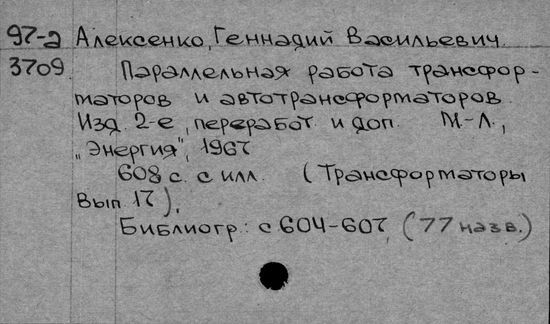 97-а Алексенко, Геннадий Васильевич.
3709 Параллельная работа трансфор-
маторов и автотрансформаторов.
Изд. 2-е, переработ. и доп. М-Л.,
„Энергия", 1967
608 с. с илл. (Трансформаторы
Вып. 17).
Библиогр.: с 604-607 (77 назв.)